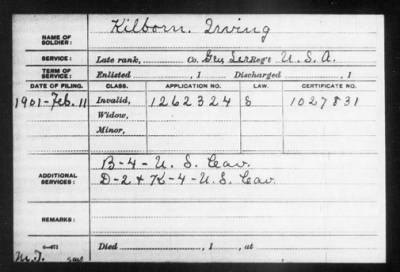 NAME OF SOLDIER: Kilborn, Irving
SERVICE: Late rank, Co. Gen Ser Reg't U. S. A.
TERM OF SERVICE: Enlisted , 1 Discharged , 1
DATE OF FILING. CLASS. APPLICATION NO. LAW. CERTIFICATE NO.
1901-Feb. 11 Invalid, 1262324 G 1027831
Widow,
Minor,
ADDITIONAL SERVICES: B-4-U. S. Cav.
D-2 & K-4-U. S. Cav.
REMARKS:
Died , 1 , at